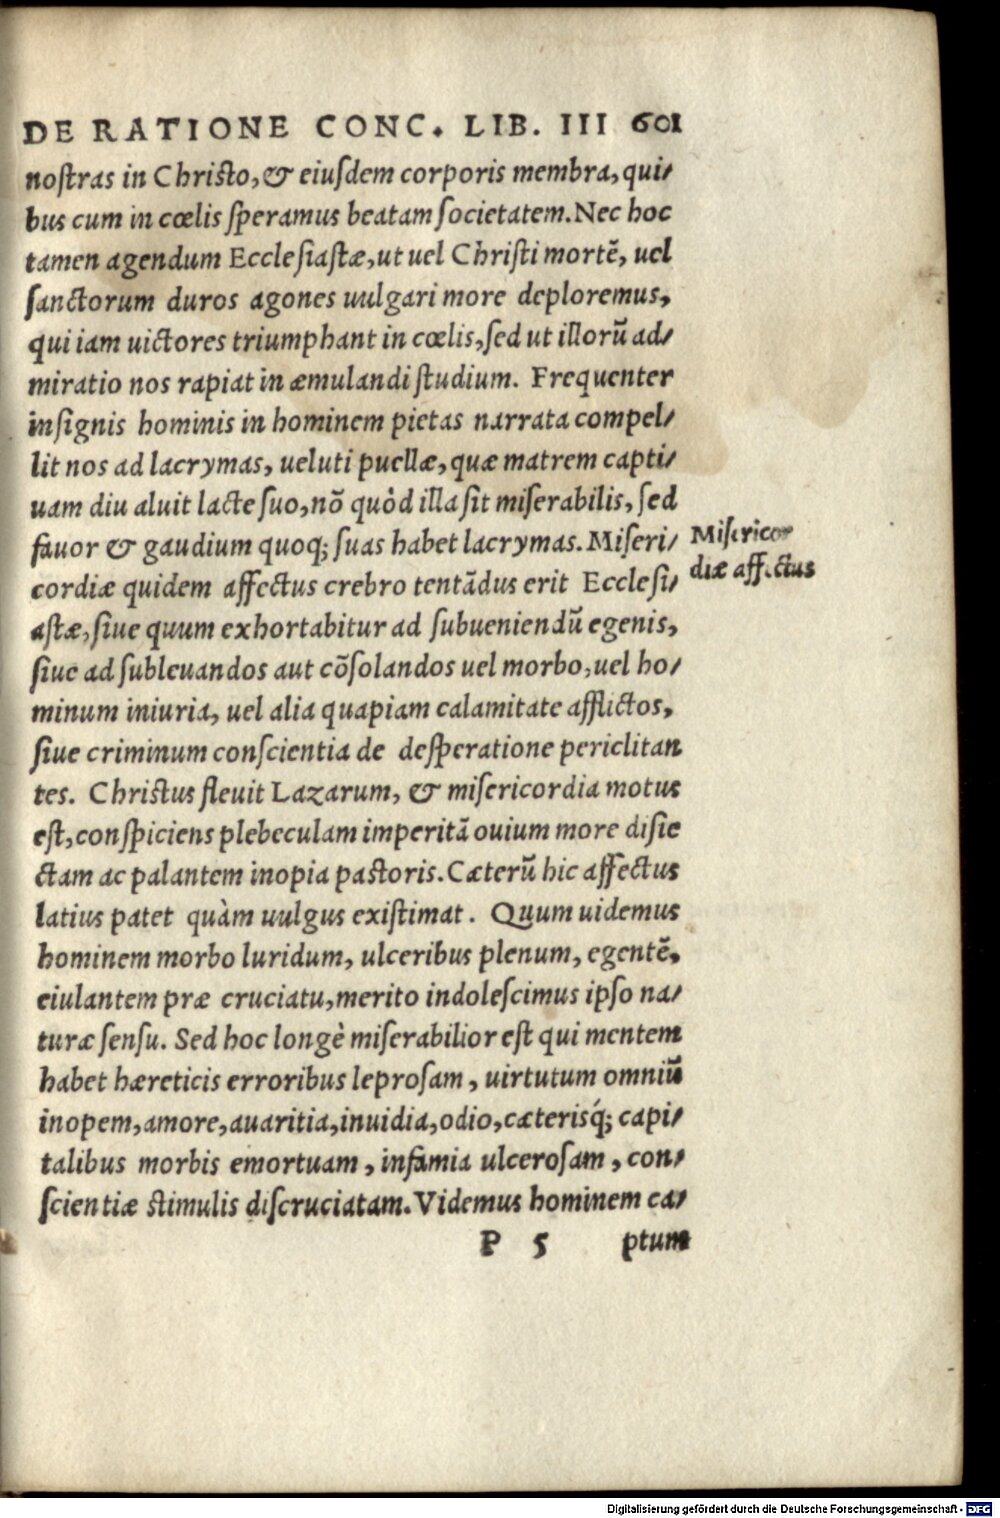 DE RATIONE CONC. LIB. III 601
nostras in Christo, & eiusdem corporis membra, qui/
bus cum in cœlis speramus beatam societatem. Nec hoc
tamen agendum Ecclesiastæ, ut uel Christi mortẽ, uel
sanctorum duros agones uulgari more deploremus,
qui iam uictores triumphant in cœlis, sed ut illorũ ad/
miratio nos rapiat in æmulandi studium. Frequenter
insignis hominis in hominem pietas narrata compel/
lit nos ad lacrymas, ueluti puellæ, quæ matrem capti/
uam diu aluit lacte suo, nõ quòd illa sit miserabilis, sed
fauor & gaudium quoq; suas habet lacrymas. Miseri/
cordiæ quidem affectus crebro tentãdus erit Ecclesi/
astæ, siue quum exhortabitur ad subueniendũ egenis,
siue ad subleuandos aut cõsolandos uel morbo, uel ho/
minum iniuria, uel alia quapiam calamitate afflictos,
siue criminum conscientia de desperatione periclitan
tes. Christus fleuit Lazarum, & misericordia motus
est, conspiciens plebeculam imperitã ouium more disie
ctam ac palantem inopia pastoris. Cæterũ hic affectus
latius patet quàm uulgus existimat. Quum uidemus
hominem morbo luridum, ulceribus plenum, egentẽ,
eiulantem præ cruciatu, merito indolescimus ipso na/
turæ sensu. Sed hoc longè miserabilior est qui mentem
habet hæreticis erroribus leprosam, uirtutum omniũ
inopem, amore, auaritia, inuidia, odio, cæterisq́; capi/
talibus morbis emortuam, infamia ulcerosam, con/
scientiæ stimulis discruciatam. Videmus hominem ca/
P 5 ptum
Misericor
diæ affectus
Digitalisierung gefördert durch die Deutsche Forschungsgemeinschaft - DFG